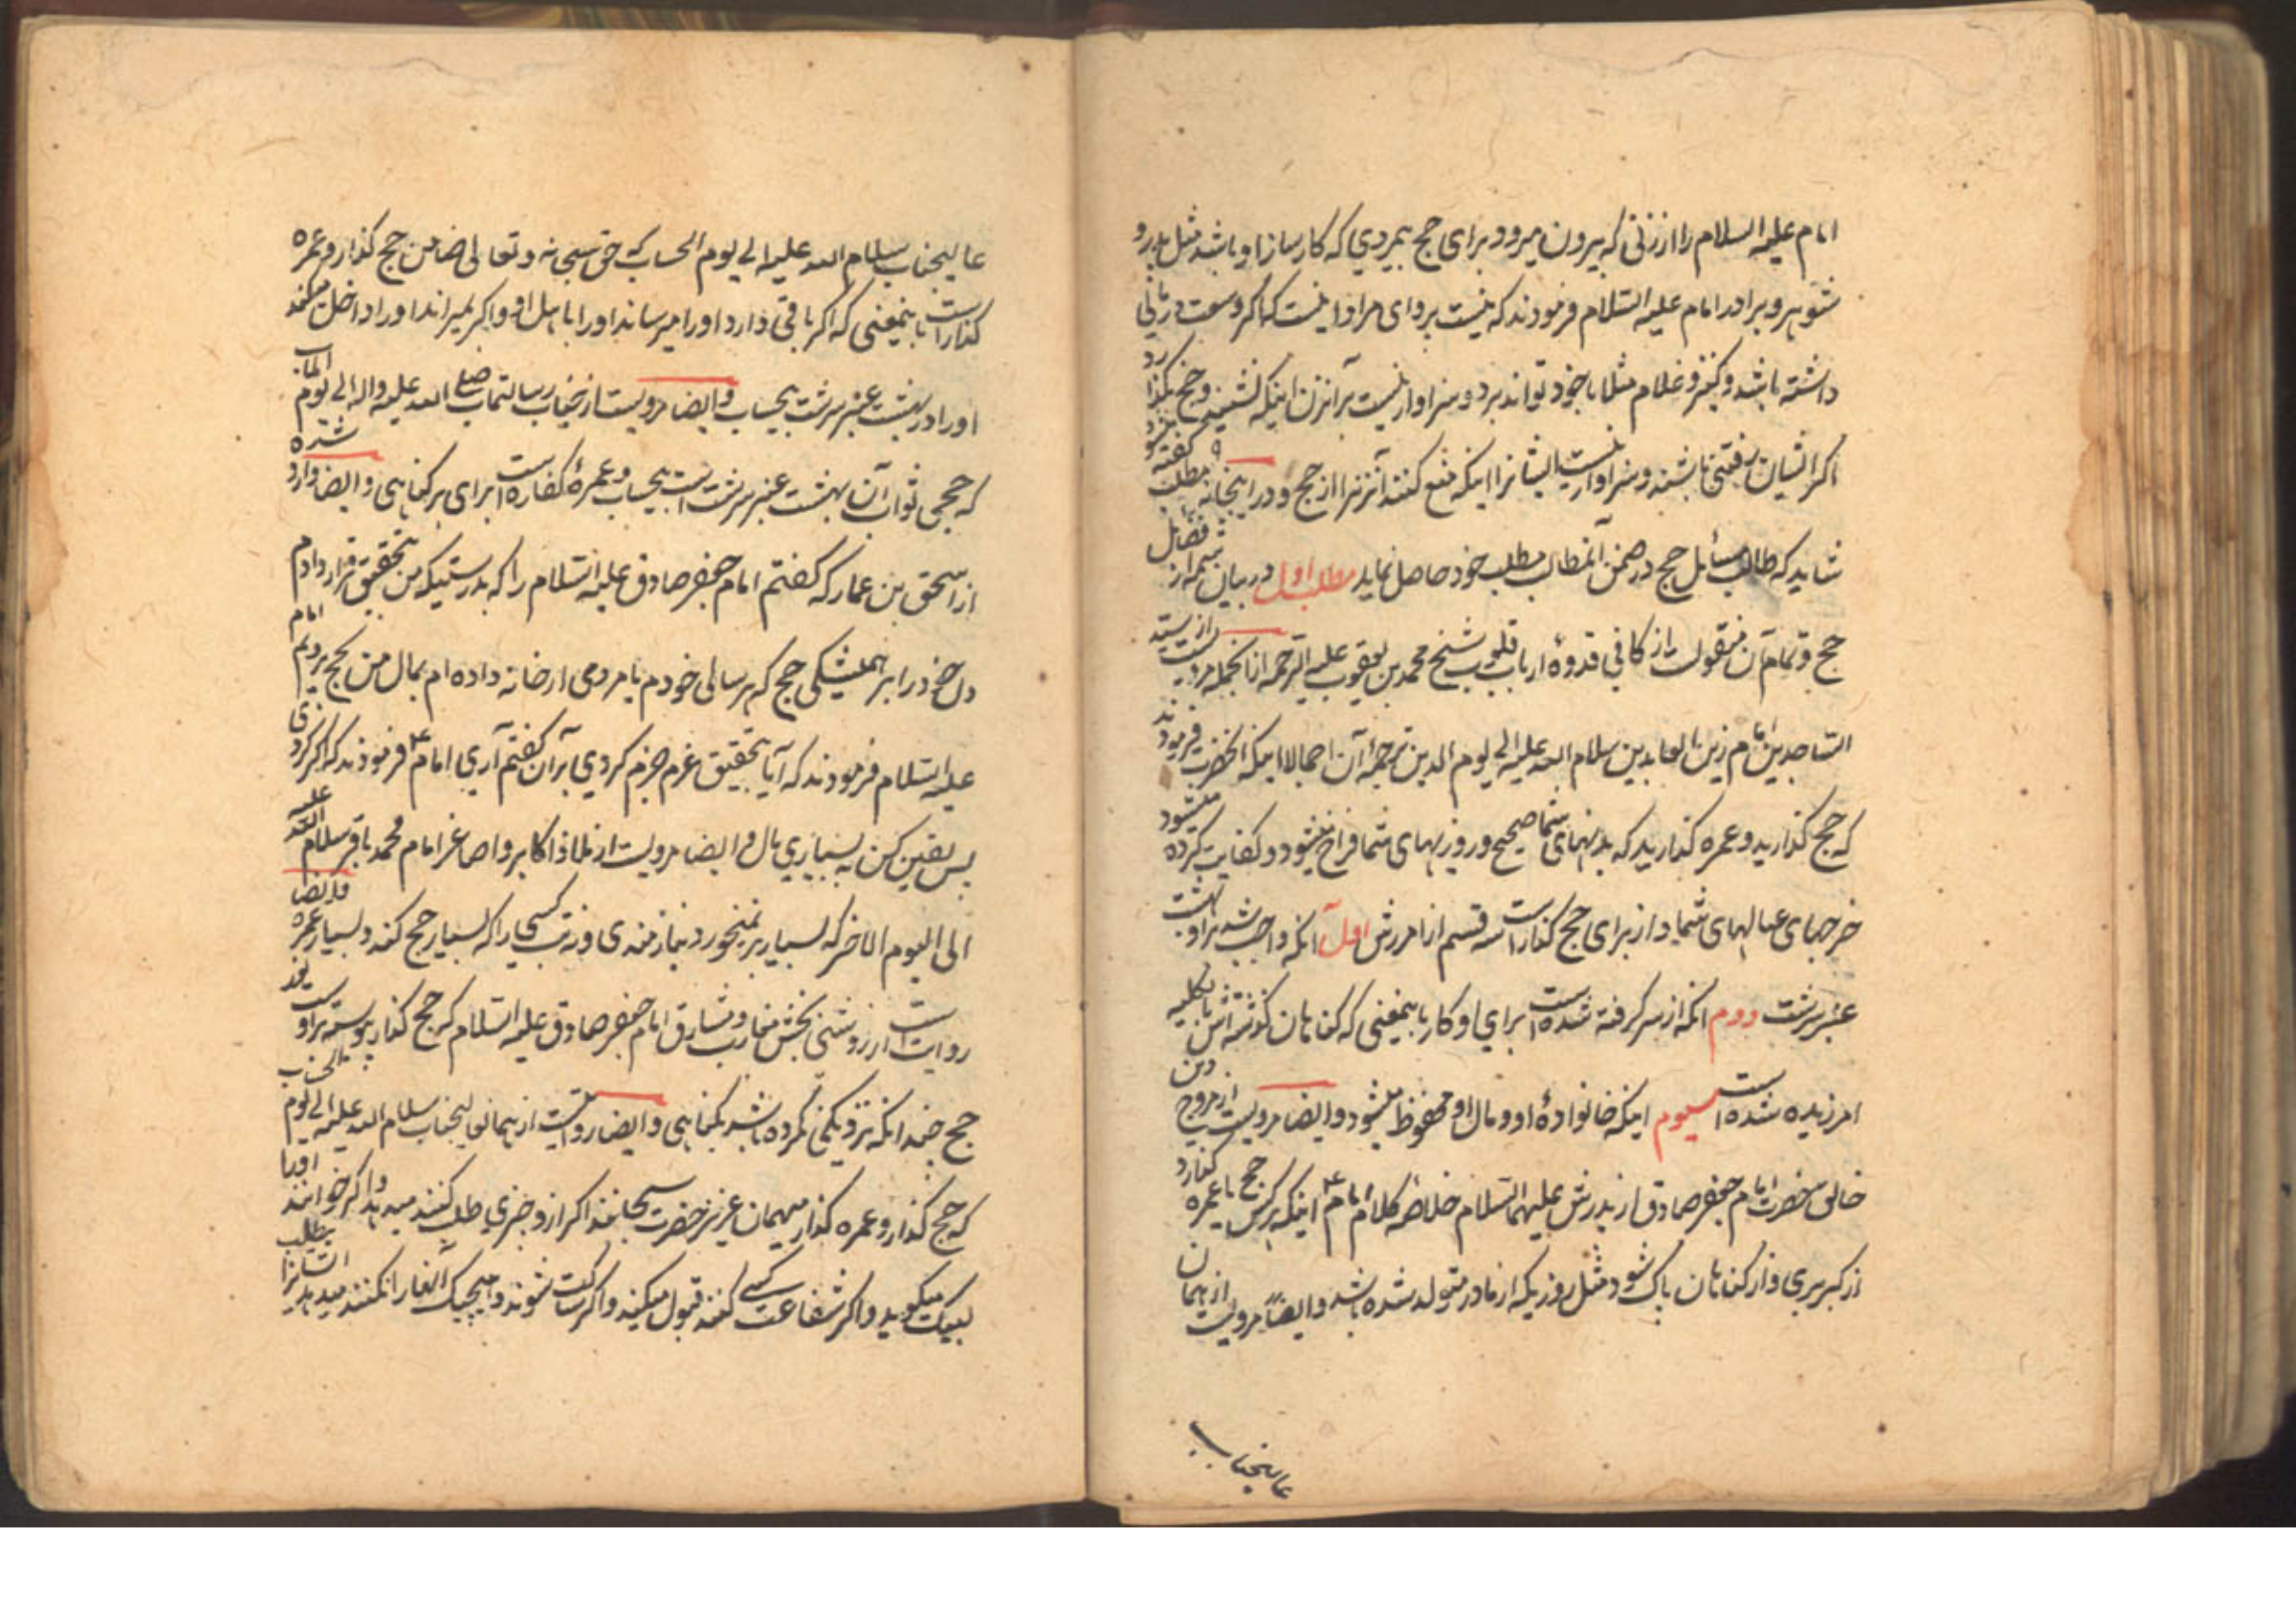 امام علیه السلام را از زنی که بیرون میرود برای حج بمردی که کارساز او باشد مثل پدر و
شوهر و برادر امام علیه السلام فرمودند که نیست پروای مر او را نیست که اگر وسعت در مالی
داشته باشد و کنیز و غلام مثلا با خود تواند برد و سزاوار نیست بر آنزن اینکه نشیند و حج بگذارد
اگر ایشان رفتنی باشند و سزاوار نیست ایشانرا اینکه منع کنند آنزنرا از حج و در اینجا نه مطلب گفته شود
شاید که طالب مسائل حج در ضمن آنمطالب مطلب خود حاصل نماید مطلب اول در بیان شمه از فضائل
حج و تمام آن منقولست از کافی قدوهٔ ارباب قلوب شیخ محمد بن یعقوب علیه الرحمه از انجمله مرویست از سید
الساجدین امام زین العابدین سلام الله علیه الی یوم الدین ترجمهٔ آن اجمالا اینکه آنحضرت فرمودند
که حج گذارید و عمره گذارید که بدنهای شما صحیح و روزیهای شما فراخ میشود و کفایت کرده میشود
خرجهای عیالهای شما و از برای حج گذار است سه قسم از امرزش اول آنکه واجب شد بر او بهشت
عنبر سرشت دوم آنکه از سر گرفته شده است برای او کار باینمعنی که گناهان گذشته اش بالکلیه
امرزیده شده است سیوم اینکه خانوادهٔ او و مال او محفوظ میشود و ایضا مرویست از مروج دین
خالق حضرت امام جعفر صادق از پدرش علیهما السلام خلاصه کلام امام ع اینکه هر کس حج یا عمره گذارد
از کبر بری و از گناهان پاک شود مثل روزیکه از مادر متولد شده باشد و ایضاً مرویست از همان
عالیجناب
عالیجناب سلام الله علیه الی یوم الحساب که حق سبحانه و تعالی ضامن حج گذار و عمره
گذار است باینمعنی که اگر باقی دارد او را میرساند او را باهل او و اگر بمیراند او را داخل میکند
او را در بهشت عنبر سرشت بیحساب و ایضا مرویست از جناب رسالتماب صلی الله علیه و اله الی یوم الماب
که حجی ثواب آن بهشت عنبر سرشت است بیحساب و عمرهٔ کفاره است برای هر گناهی و ایضا وارد شده
از اسحق بن عمار که گفتم امام جعفر صادق علیه السلام را که بدرستیکه من بتحقیق قرار دادم
دل خود را بر همیشگی حج که هر سالی خودم یا مردمی از خانه داده ام بمال من بحج برویم امام
علیه السلام فرمودند که آیا بتحقیق عزم جزم کردی بر آن گفتم آری امام ع فرمودند که اگر کردی
پس یقین کن به بسیاری مال و ایضا مرویست از ملاذ اکابر و اصاغر امام محمد باقر سلام الله علیه
الی الیوم الاخر که بسیار بر نمیخورد نیازمندی و تب کسی را که بسیار حج کند و بسیار عمره و ایضا
روایت است از روشنی بخش مغارب و مشارق امام جعفر صادق علیه السلام که حج گذار پیوسته بر اوست نور
حج چند آنکه نزدیکی نکرده باشد بگناهی و ایضا روایت از همان عالیجناب سلام الله علیه الی یوم الحساب
که حج گذار و عمره گذار میهمان عزیز حضرت سبحانند اگر از و چیزی طلب کنند میدهد و اگر خوانند او را
لبیک میگوید و اگر شفاعت کسی کنند قبول میکند و اگر ساکت شوند و هیچیک آغاز نکنند میدهد ایشانرا بیطلب